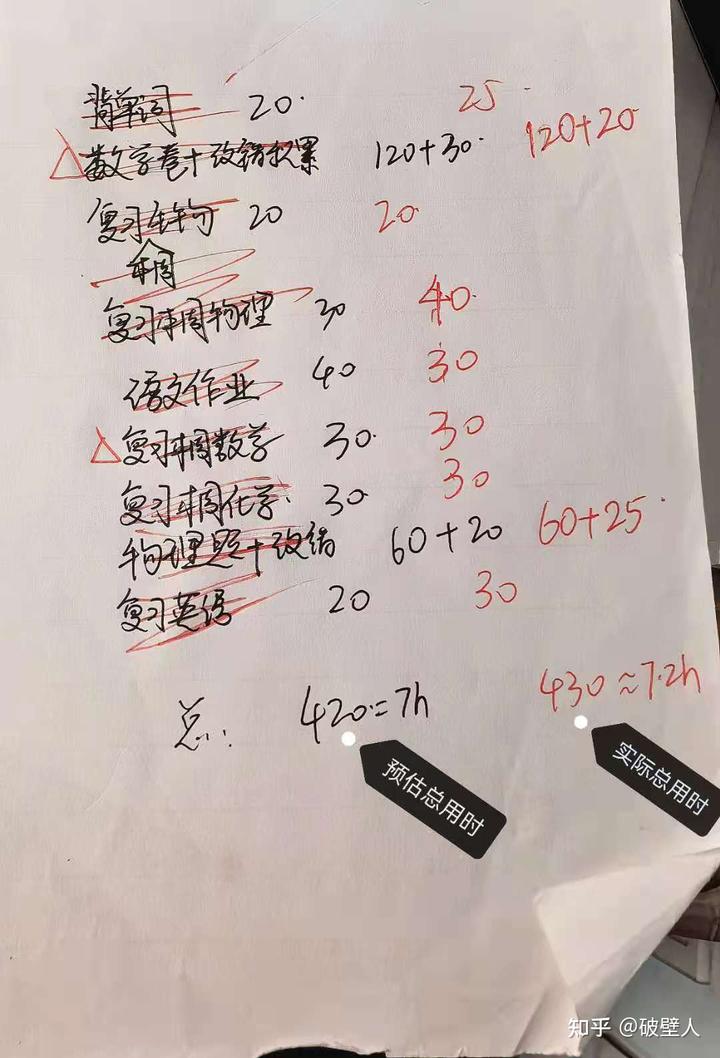 背单词 20. 25.
△数学卷+改错积累 120+30. 120+20
复习生物 20 20.
本周
复习本周物理 30 40.
语文作业 40 30
△复习本周数学 30. 30
复习本周化学. 30. 30
物理题+改错 60+20 60+25.
复习英语 20 30
总: 420=7h 430≈7.2h
预估总用时
实际总用时
知乎 @破壁人